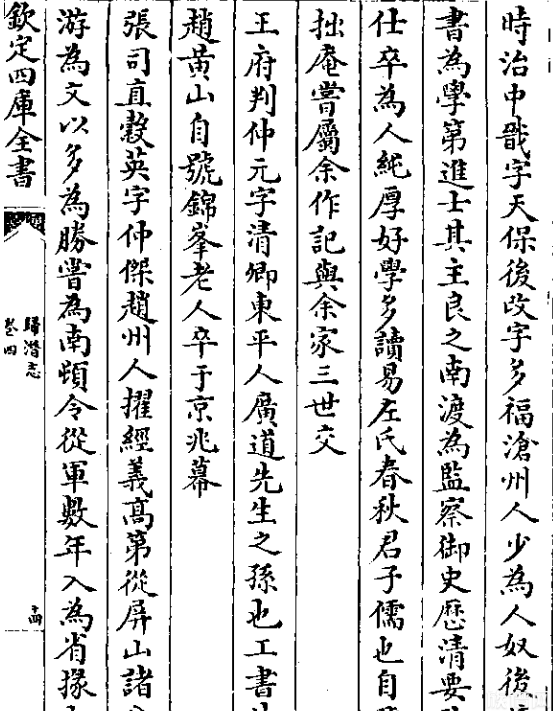 時治中戩字天保後改字多福滄州人少為人奴後
書為學第進士其主良之南渡為監察御史歷清要
仕卒為人純厚好學多讀易左氏春秋君子儒也自
拙庵嘗屬余作記與余家三世交
王府判仲元字清卿東平人廣道先生之孫也工書
趙黃山自號錦峯老人卒于京兆幕
張司直瑴英字仲傑趙州人擢經義高第從屏山諸
游為文以多為勝嘗為南頓令從軍數年入為省掾
欽定四庫全書
歸潛志
卷四
十四